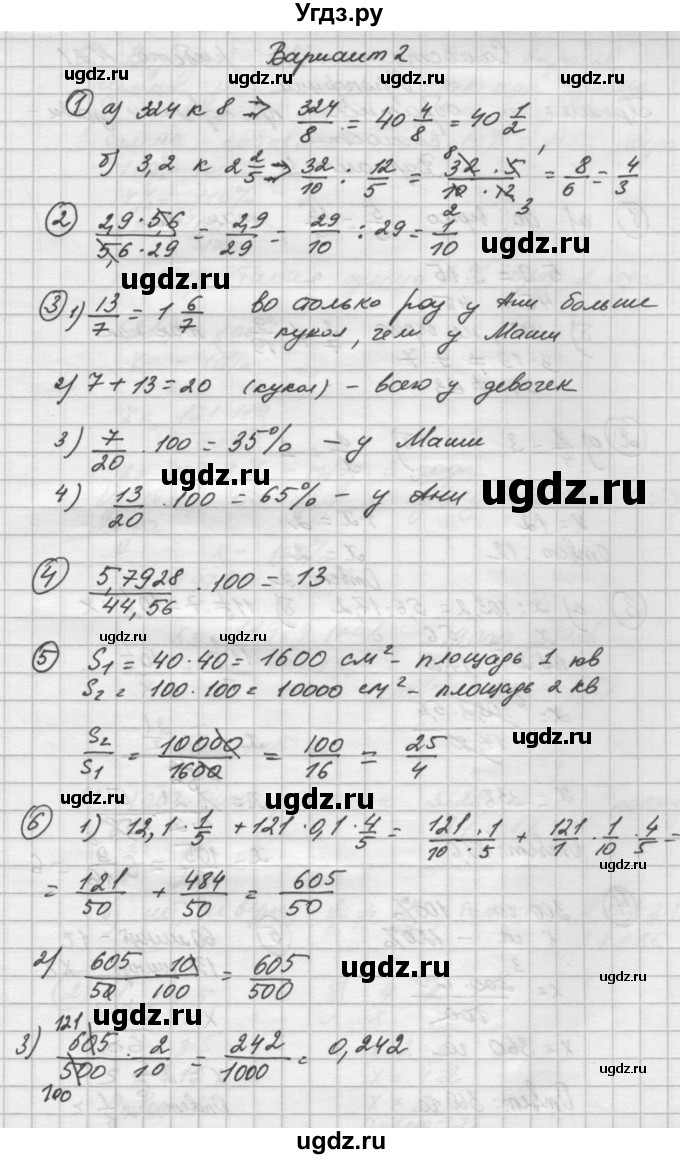 Угдз.ру
Вариант 2
ugdz.ru ugdz.ru
① а) 324 к 8 => 324/8 = 40 4/8 = 40 1/2
б) 3,2 к 2 2/5 => 32/10 : 12/5 = 32·5/10·12 = 8/6 = 4/3
② 2,9·5,6/5,6·29 = 2,9/29 = 29/10 : 29 = 1/10
ugdz.ru
ugdz.ru
③ 1) 13/7 = 1 6/7 во столько раз у Ани больше
кукол, чем у Маши
2) 7 + 13 = 20 (кукол) – всего у девочек
3) 7/20 · 100 = 35% – у Маши
ugdz.ru
4) 13/20 · 100 = 65% – у Ани
ugdz.ru
④ 5,7928/44,56 · 100 = 13
ugdz.ru ugdz.ru
⑤ S1 = 40·40 = 1600 см² – площадь 1 кв
S2 = 100·100 = 10000 см² – площадь 2 кв
ugdz.ru
S2/S1 = 10000/1600 = 100/16 = 25/4
ugdz.ru
ugdz.ru
⑥ 1) 12,1 · 1/5 + 121 · 0,1 · 4/5 = 121·1/10·5 + 121/1 · 1/10 · 4/5 =
= 121/50 + 484/50 = 605/50
ugdz.ru
2) 605/50 · 10/100 = 605/500
ugdz.ru
ugdz.ru
ugdz.ru
3) 605/500 · 2/10 = 242/1000 = 0,242
121
100
ugdz.ru
ugdz.ru
ugdz.ru